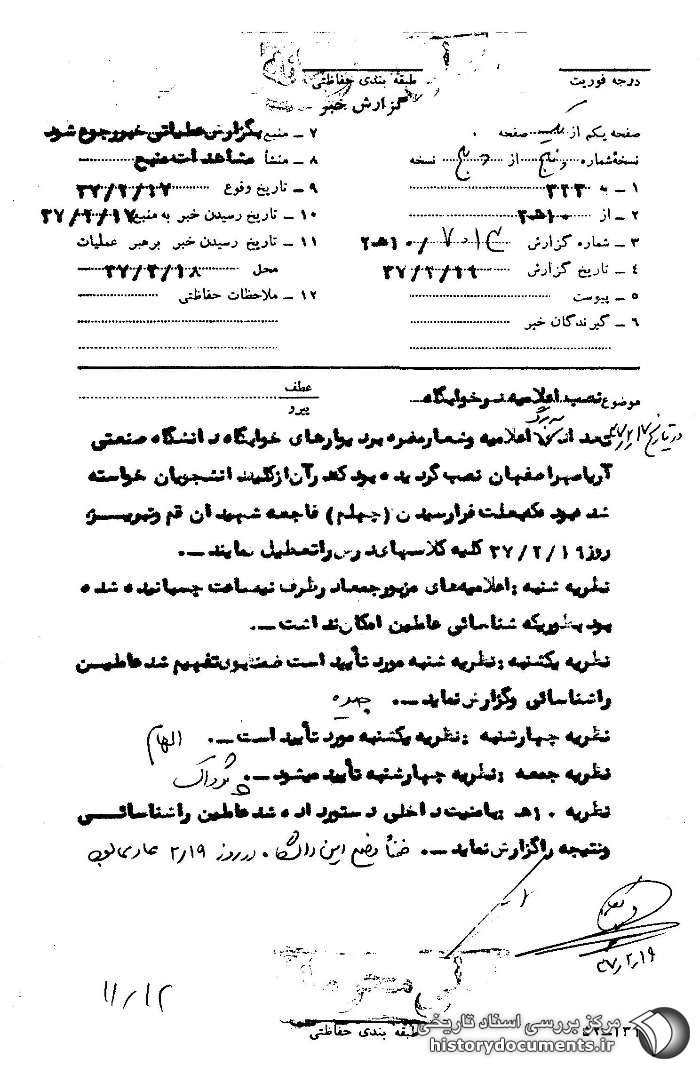 درجه فوریت
طبقه بندی حفاظتی
گزارش خبر
صفحه یکم از یک صفحه
نسخهٔ شماره پنج از پنج نسخه
۱ ـ به ۳۲۳
۲ ـ از ۱۰هـ۲
۳ ـ شماره گزارش ۲هـ۱۰/۷۰۱۳
۴ ـ تاریخ گزارش ۳۷/۲/۱۹
۵ ـ پیوست
۶ ـ گیرندگان خبر
۷ ـ منبع بگزارش عملیاتی خبر رجوع شود
۸ ـ منشأ مشاهدات منبع
۹ ـ تاریخ وقوع ۳۷/۲/۱۷
۱۰ ـ تاریخ رسیدن خبر به منبع ۳۷/۲/۱۷
۱۱ ـ تاریخ رسیدن خبر برهبر عملیات
محل ۳۷/۲/۱۸
۱۲ ـ ملاحظات حفاظتی
موضوع نصب اعلامیه در خوابگاه
عطف
پیرو
در تاریخ ۳۷/۲/۱۷ تعداد سه برگ اعلامیه و شعار مضره بر دیوارهای خوابگاه دانشگاه صنعتی
آریامهر اصفهان نصب گردیده بود که در آن از کلیه دانشجویان خواسته
شده بود که بعلت فرارسیدن (چهلم) فاجعه شهیدان قم و تبریز
روز ۳۷/۲/۱۹ کلیه کلاسهای درس را تعطیل نمایند ـ.
نظریه شنبه : اعلامیه‌های مزبور جمعاً در ظرف نیمساعت چسبانیده شده
بود بطوریکه شناسائی عاملین امکان نداشت ـ.
نظریه یکشنبه : نظریه شنبه مورد تأیید است ضمناً بوی تفهیم شد عاملین
را شناسائی و گزارش نماید ـ.
نظریه چهارشنبه : نظریه یکشنبه مورد تأیید است ـ. الهام
نظریه جمعه : نظریه چهارشنبه تأیید میشود ـ. پوراک
نظریه ۱۰هـ : بامنیت داخلی دستور داده شد عاملین را شناسائی
و نتیجه را گزارش نماید ـ. ضمناً وضع این دانشگاه در روز ۲/۱۹ عادی
۳۷/۲/۱۹
۱۱/۱۲
طبقه بندی حفاظتی
مرکز بررسی اسناد تاریخی
historydocuments.ir